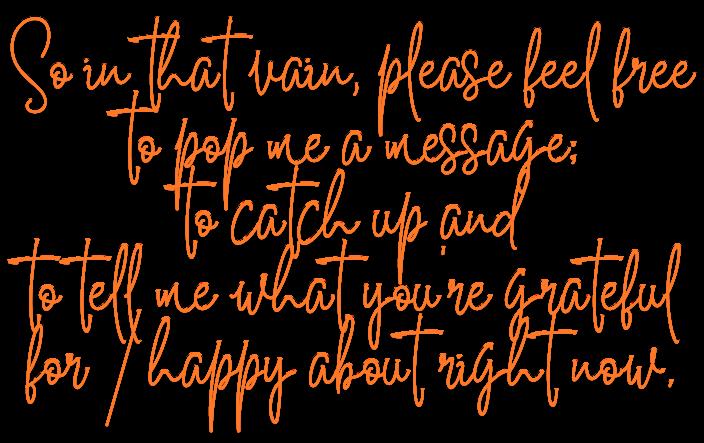 So in that vain, please feel free
to pop me a message;
to catch up and
to tell me what you're grateful
for / happy about right now.